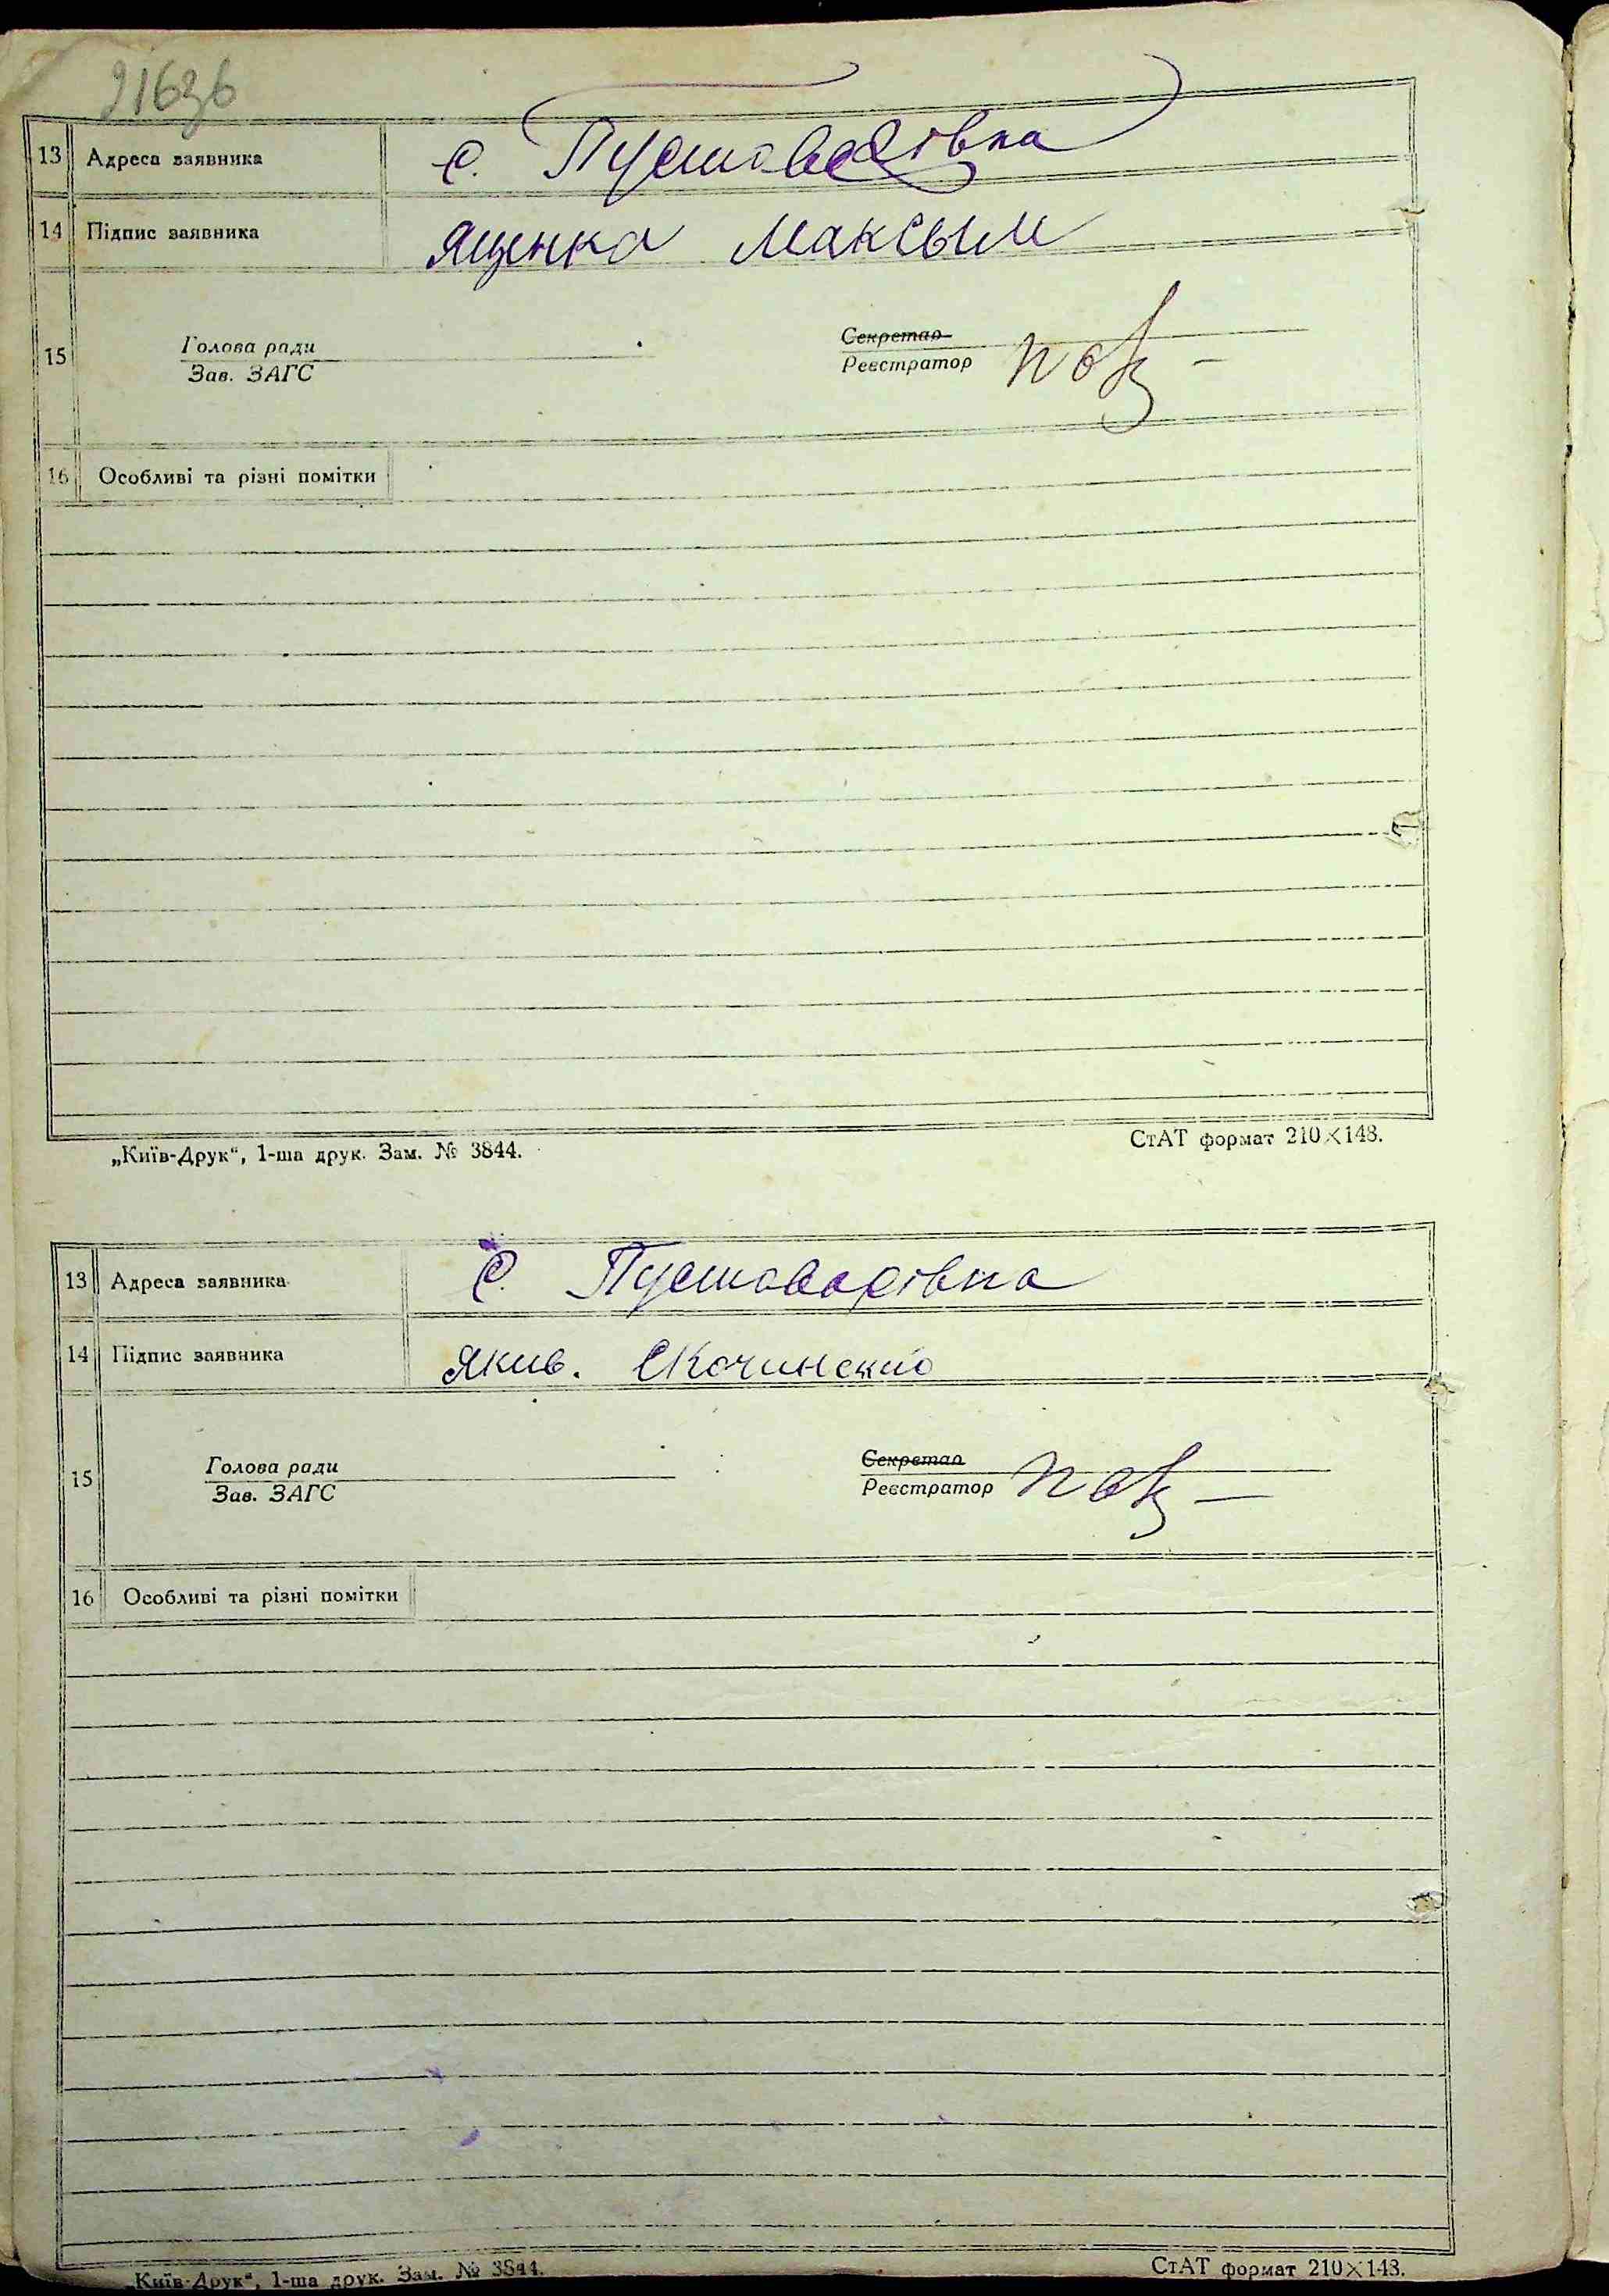 13 Адреса заявника с. Пустоварівка
14 Підпис заявника Ященко Максым
15 Голова ради Секретар
Зав. ЗАГС Реєстратор
16 Особливі та різні помітки
„Київ-Друк“, 1-ша друк. Зам. № 3844. СтАТ формат 210×148.
13 Адреса заявника С. Пустоварівка
14 Підпис заявника Якив. Скочинский
15 Голова ради Секретар
Зав. ЗАГС Реєстратор
16 Особливі та різні помітки
„Київ-Друк“, 1-ша друк. Зам. № 3844. СтАТ формат 210×148.